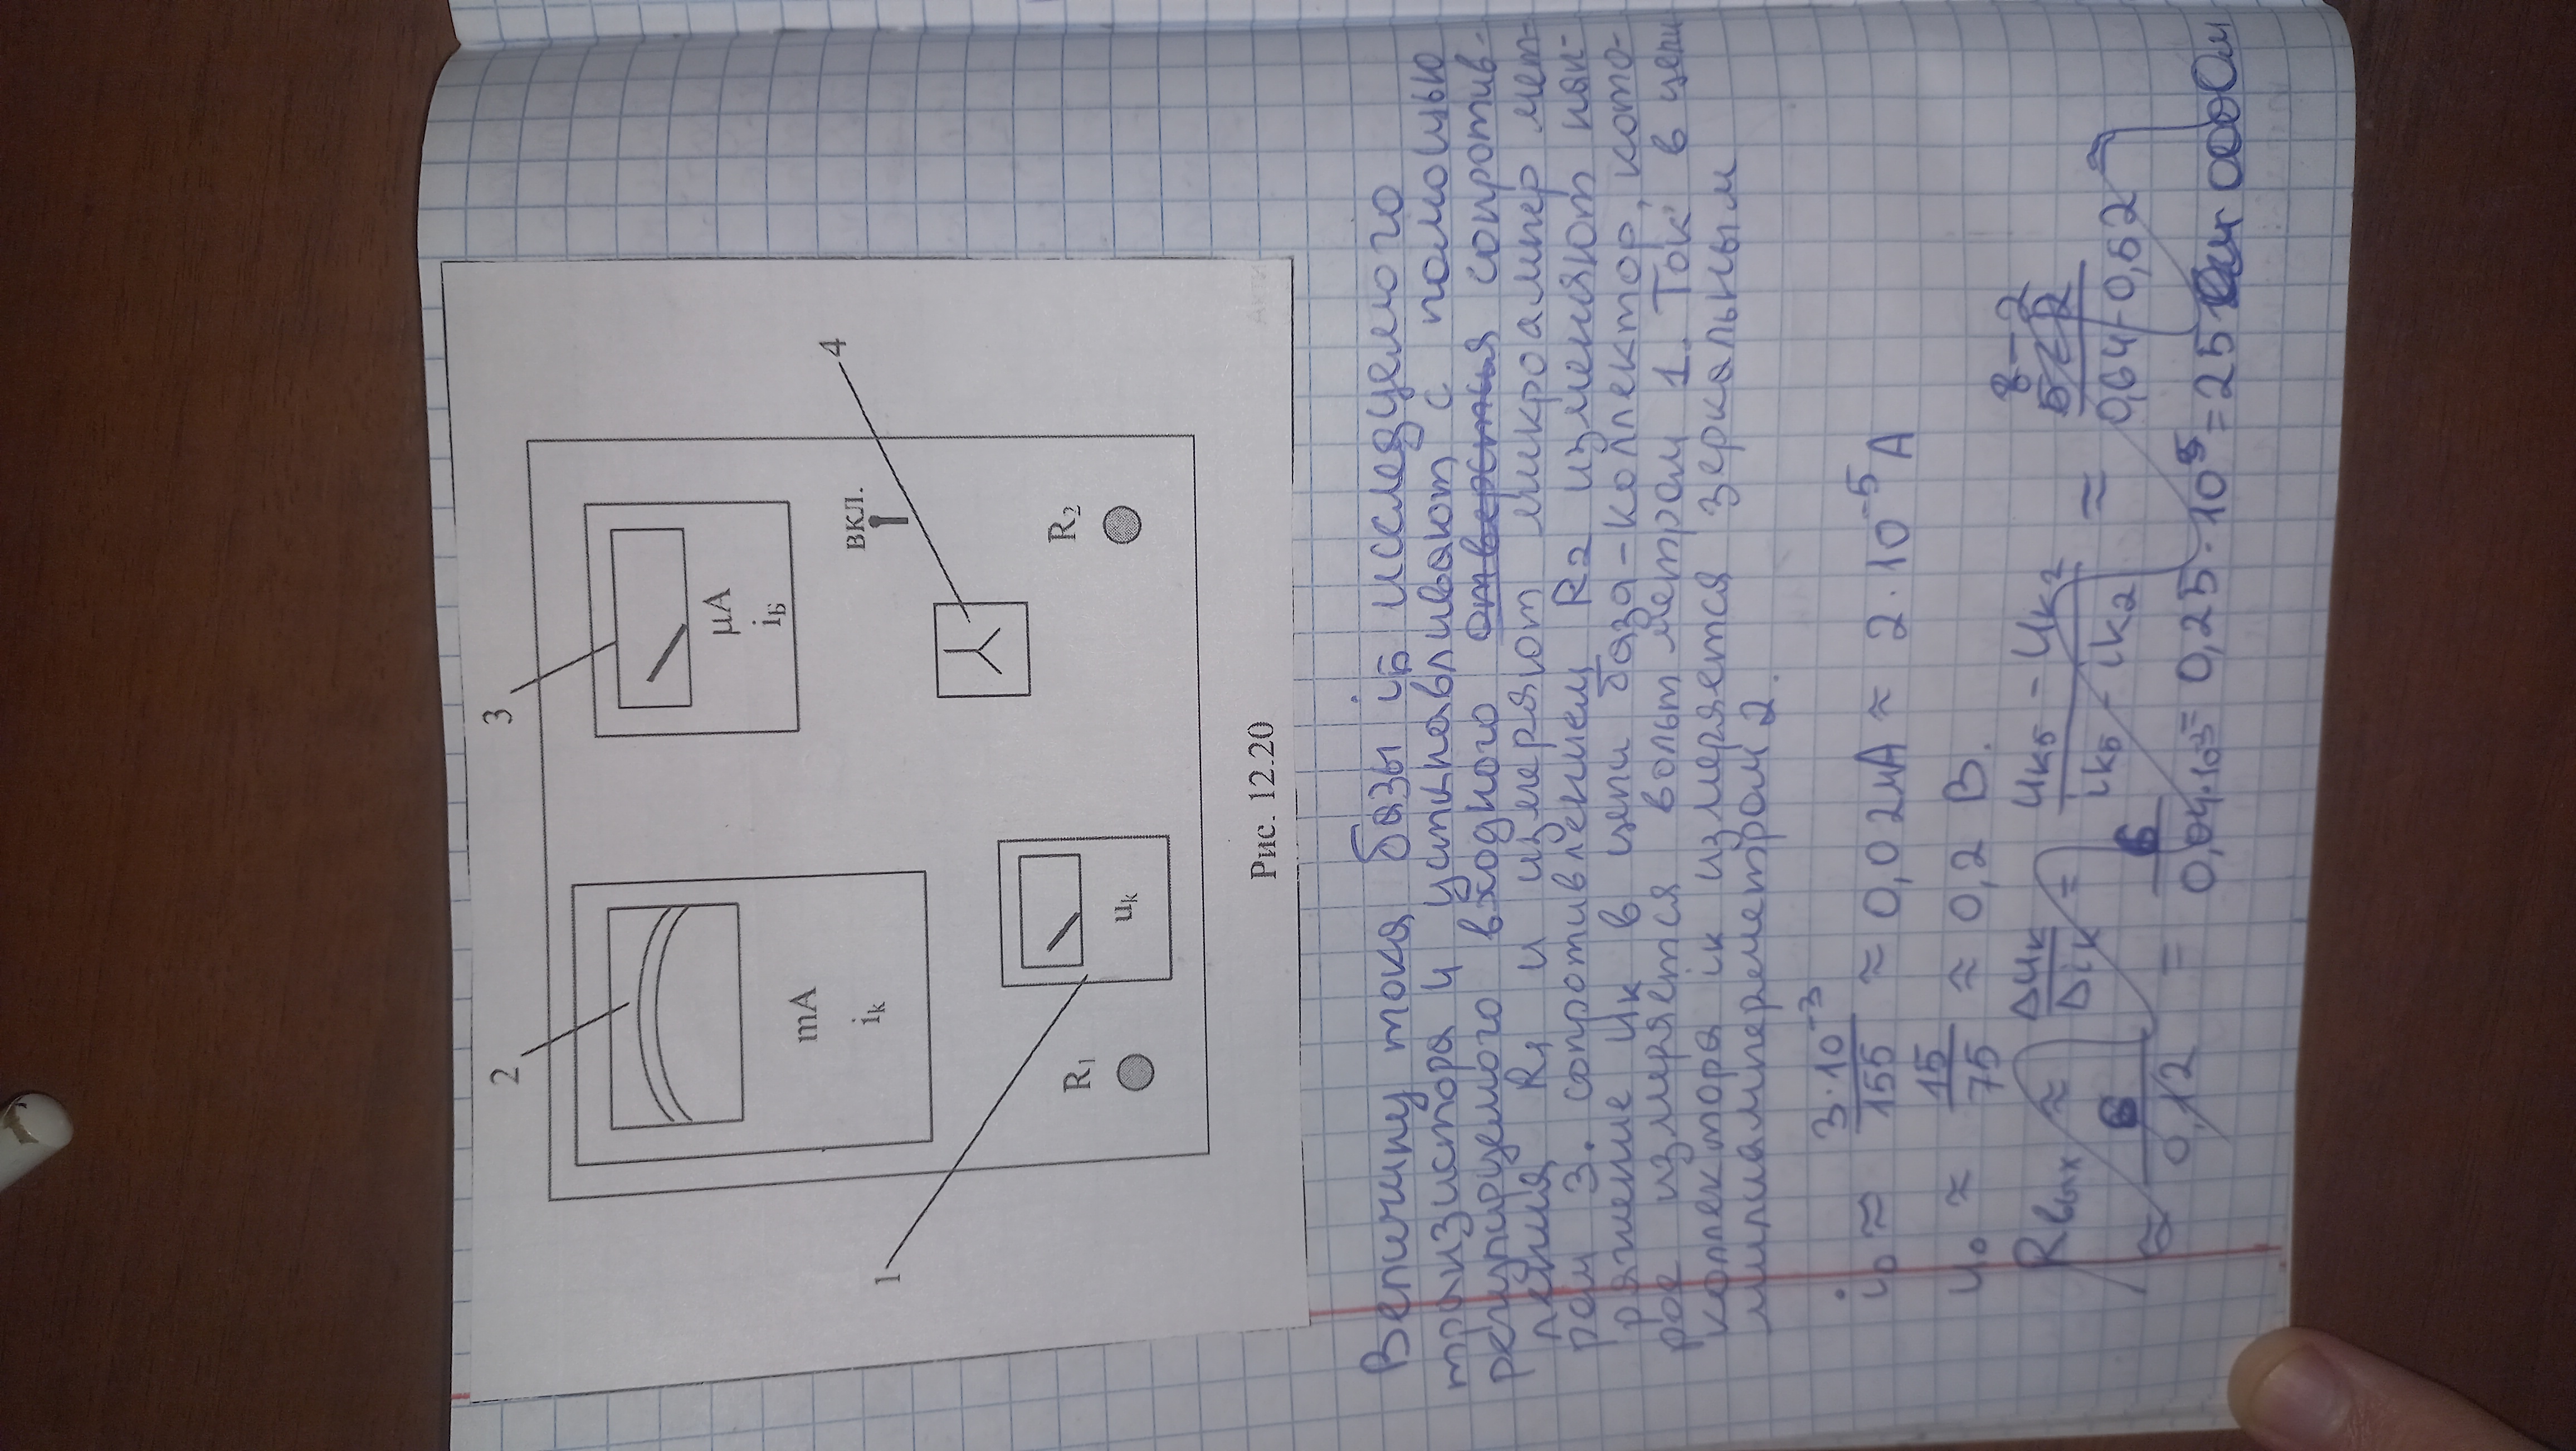 2
3
mA
iк
μA
iБ
вкл.
4
1
R1
uк
R2
Рис. 12.20
Акти
Величину тока базы iБ исследуемого
транзистора 4 устанавливают с помощью
регулируемого входного отверстия сопротив-
ления R1 и измеряют микроампермет-
ром 3. сопротивлением R2 изменяют нап-
ряжение uк в цепи база-коллектор, кото-
рое измеряется вольтметром 1. Ток в цепи
коллектора iк измеряется зеркальным
милиамперметром 2.
i0 ≈ 3·10⁻³/155 ≈ 0,02мА ≈ 2·10⁻⁵А
u0 ≈ 15/75 ≈ 0,2 В.
Rвых ≈ Δuк/Δiк = (uк5 - uк2)/(iк5 - iк2) ≈ 8-2/0,64-0,52
≈ 6/0,12 = 6/0,04·10⁻³ = 0,25·10⁵ = 25 000 Ом